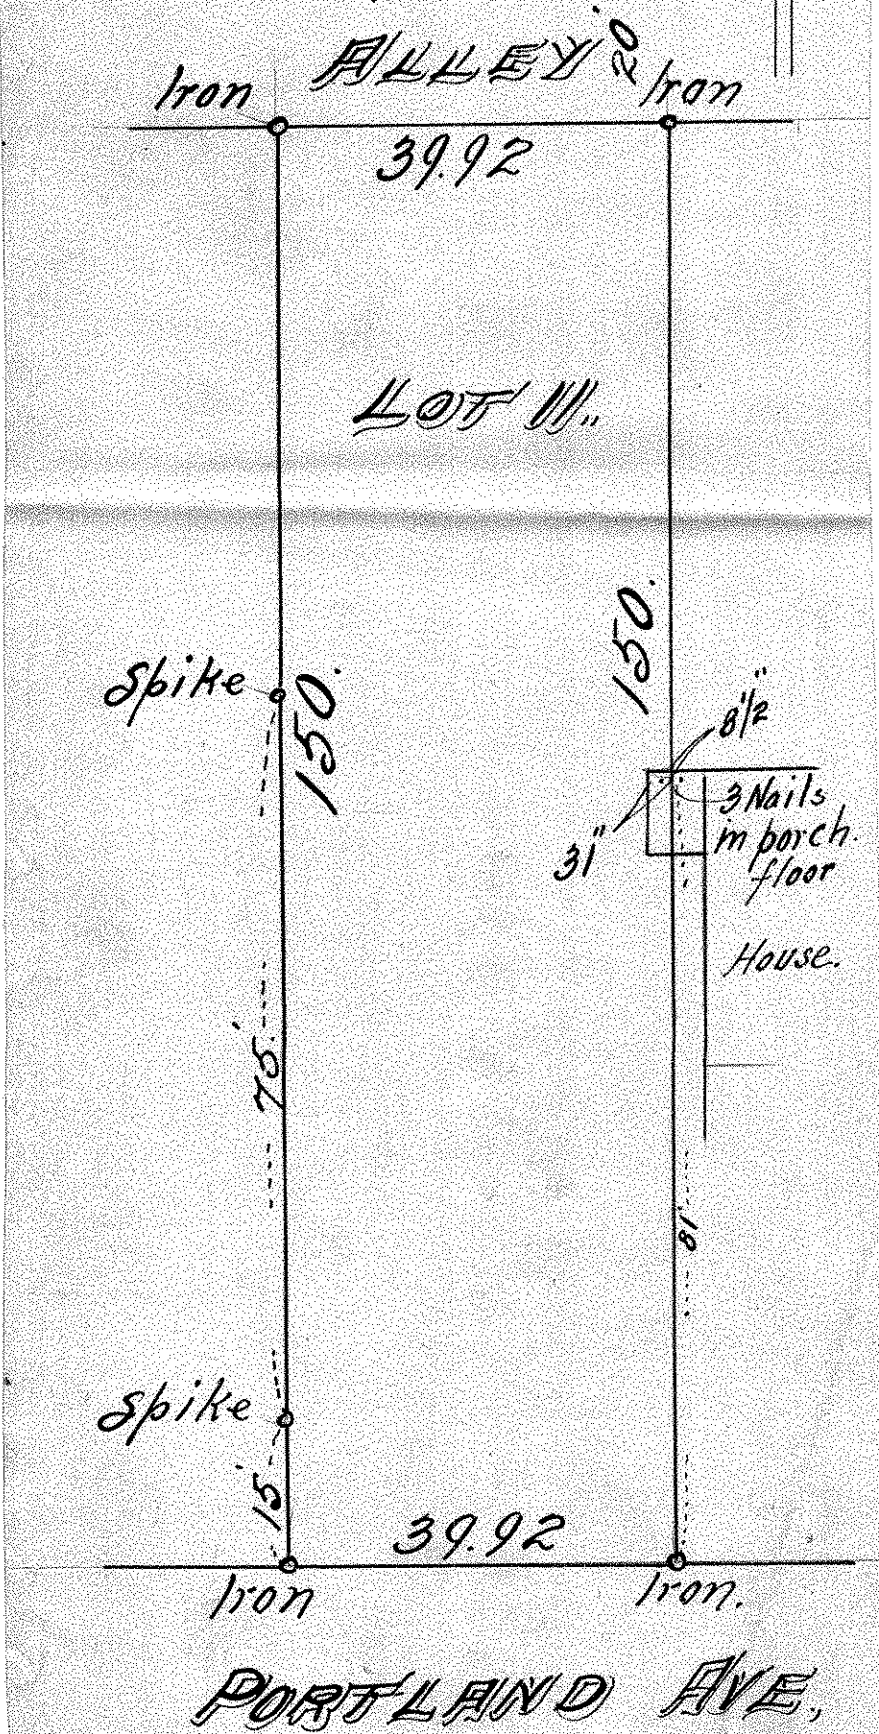 ALLEY 20'
Iron
Iron
39.92
LOT 11.
150.
Spike
150.
8 1/2"
3 Nails
in porch.
floor
31"
House.
75.'
81'
Spike
15'
39.92
Iron
Iron.
PORTLAND AVE.